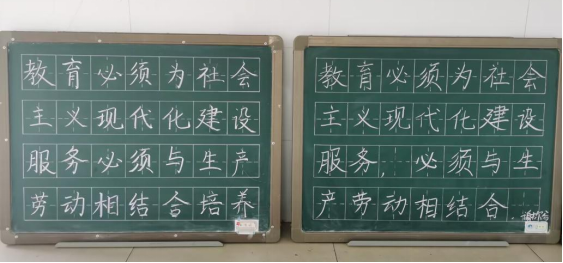 教育必须为社会
主义现代化建设
服务必须与生产
劳动相结合培养
教育必须为社会
主义现代化建设
服务，必须与生
产劳动相结合，